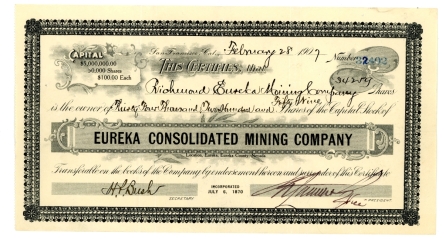 CAPITAL
$5,000,000.00
50,000 Shares
$100.00 Each
San Francisco, Cal., February 28 1917
Number
This Certifies, that
Richmond Eureka Mining Company
Shares
is the owner of Thirty Four Thousand Two Hundred and Fifty Nine Shares of the Capital Stock of
EUREKA CONSOLIDATED MINING COMPANY
Location, Eureka, Eureka County, Nevada
Transferable on the books of the Company by endorsement hereon and surrender of this Certificate
INCORPORATED
JULY 6, 1870
SECRETARY
PRESIDENT